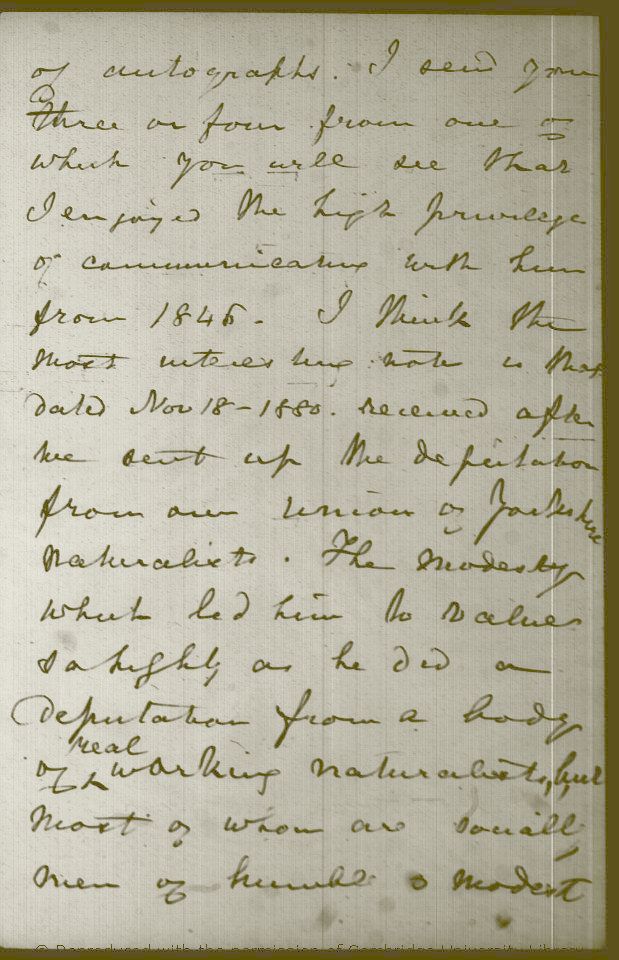 of autographs. I send you
three or four from one of
which you will see that
I enjoyed the high privilege
of communicating with him
from 1846. I think the
most interesting note is that
dated Nov 18 - 1880. received after
we sent up the deputation
from our Union of Yorkshire
naturalists. The modesty
which led him to value
so highly as he did a
deputation from a body
of real working naturalists, but
most of whom are socially
men of humble & modest
© Reproduced with the permission of Cambridge University Library